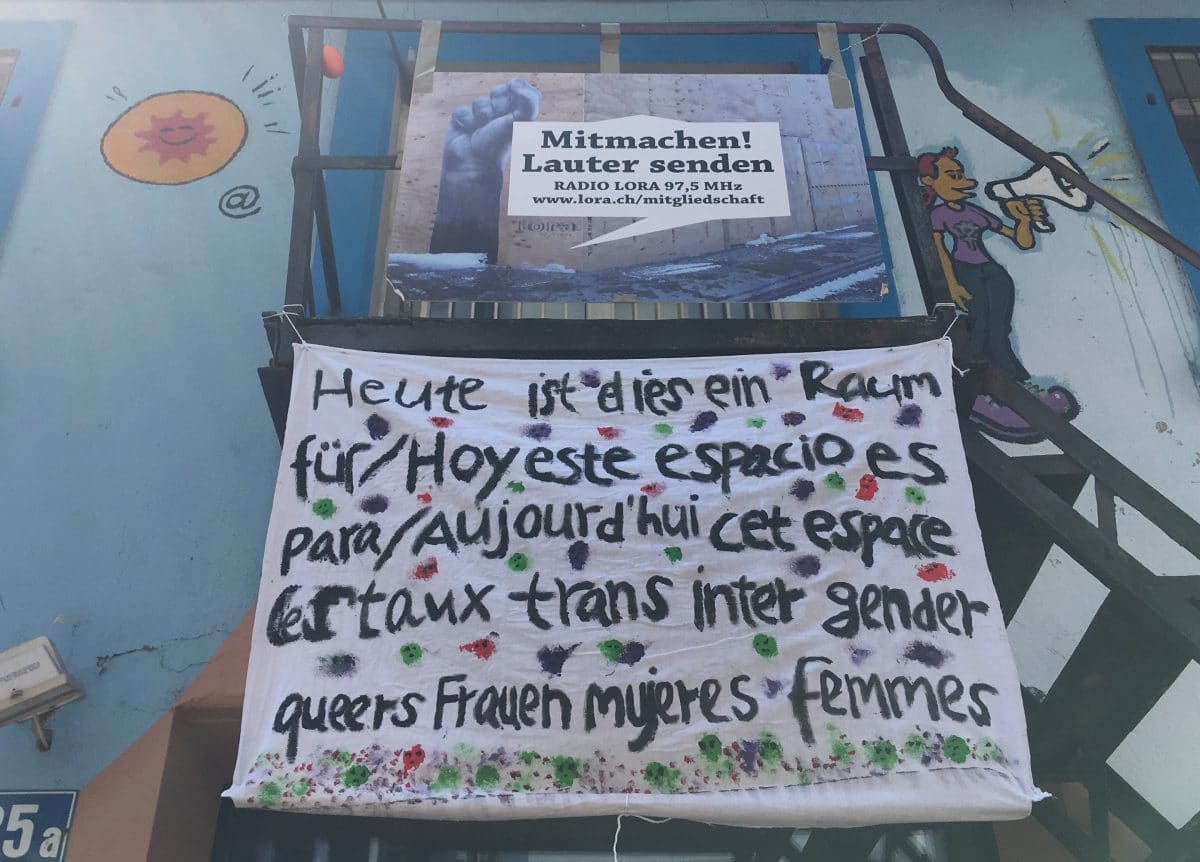 @
Mitmachen!
Lauter senden
RADIO LORA 97,5 MHz
www.lora.ch/mitgliedschaft
lora
Heute ist dies ein Raum
für/Hoy este espacio es
para/Aujourd'hui cet espace
est aux trans inter gender
queers Frauen mujeres femmes
5a